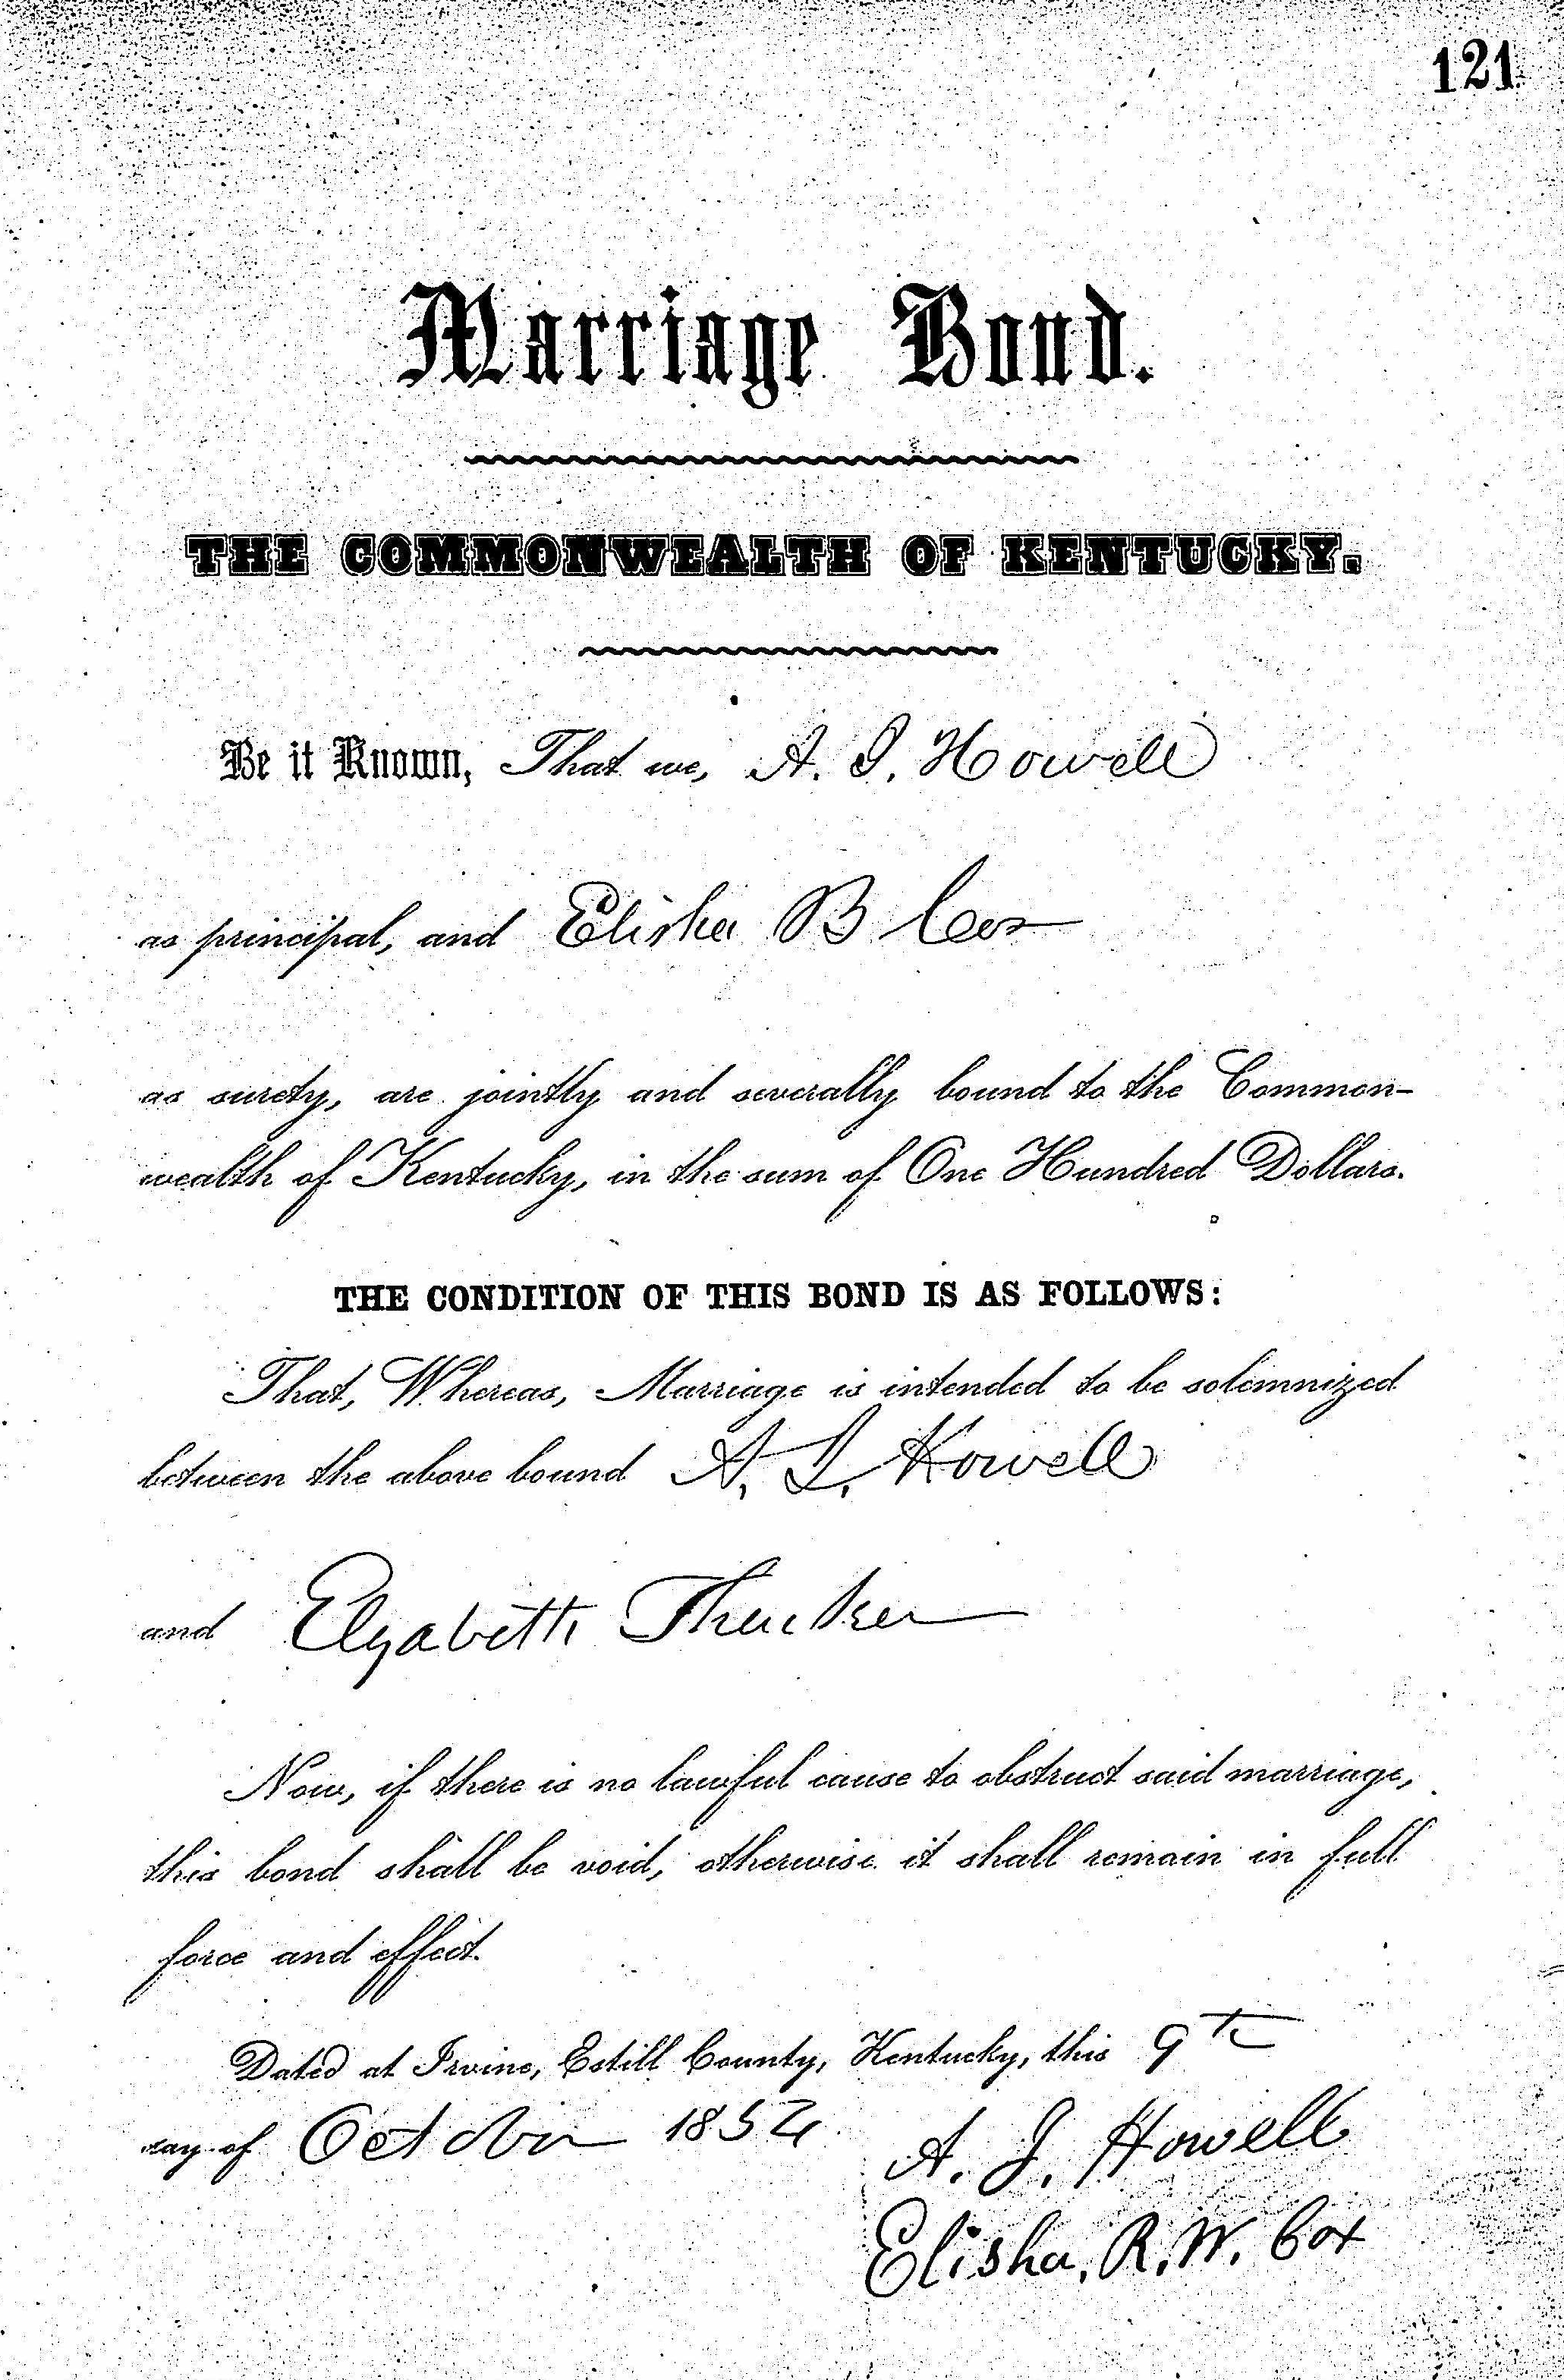 121
Marriage Bond.
THE COMMONWEALTH OF KENTUCKY.
Be it Known, That we, A. J. Howell
as principal, and Elisha B Cox
as surety, are jointly and severally bound to the Common-
wealth of Kentucky, in the sum of One Hundred Dollars.
THE CONDITION OF THIS BOND IS AS FOLLOWS:
That, Whereas, Marriage is intended to be solemnized
between the above bound A. J. Howell
and Elyabeth
Now, if there is no lawful cause to obstruct said marriage,
this bond shall be void, otherwise it shall remain in full
force and effect.
Dated at Irvine, Estill County, Kentucky, this 9th
day of October
A. J. Howell
Elisha, R. W. Cox